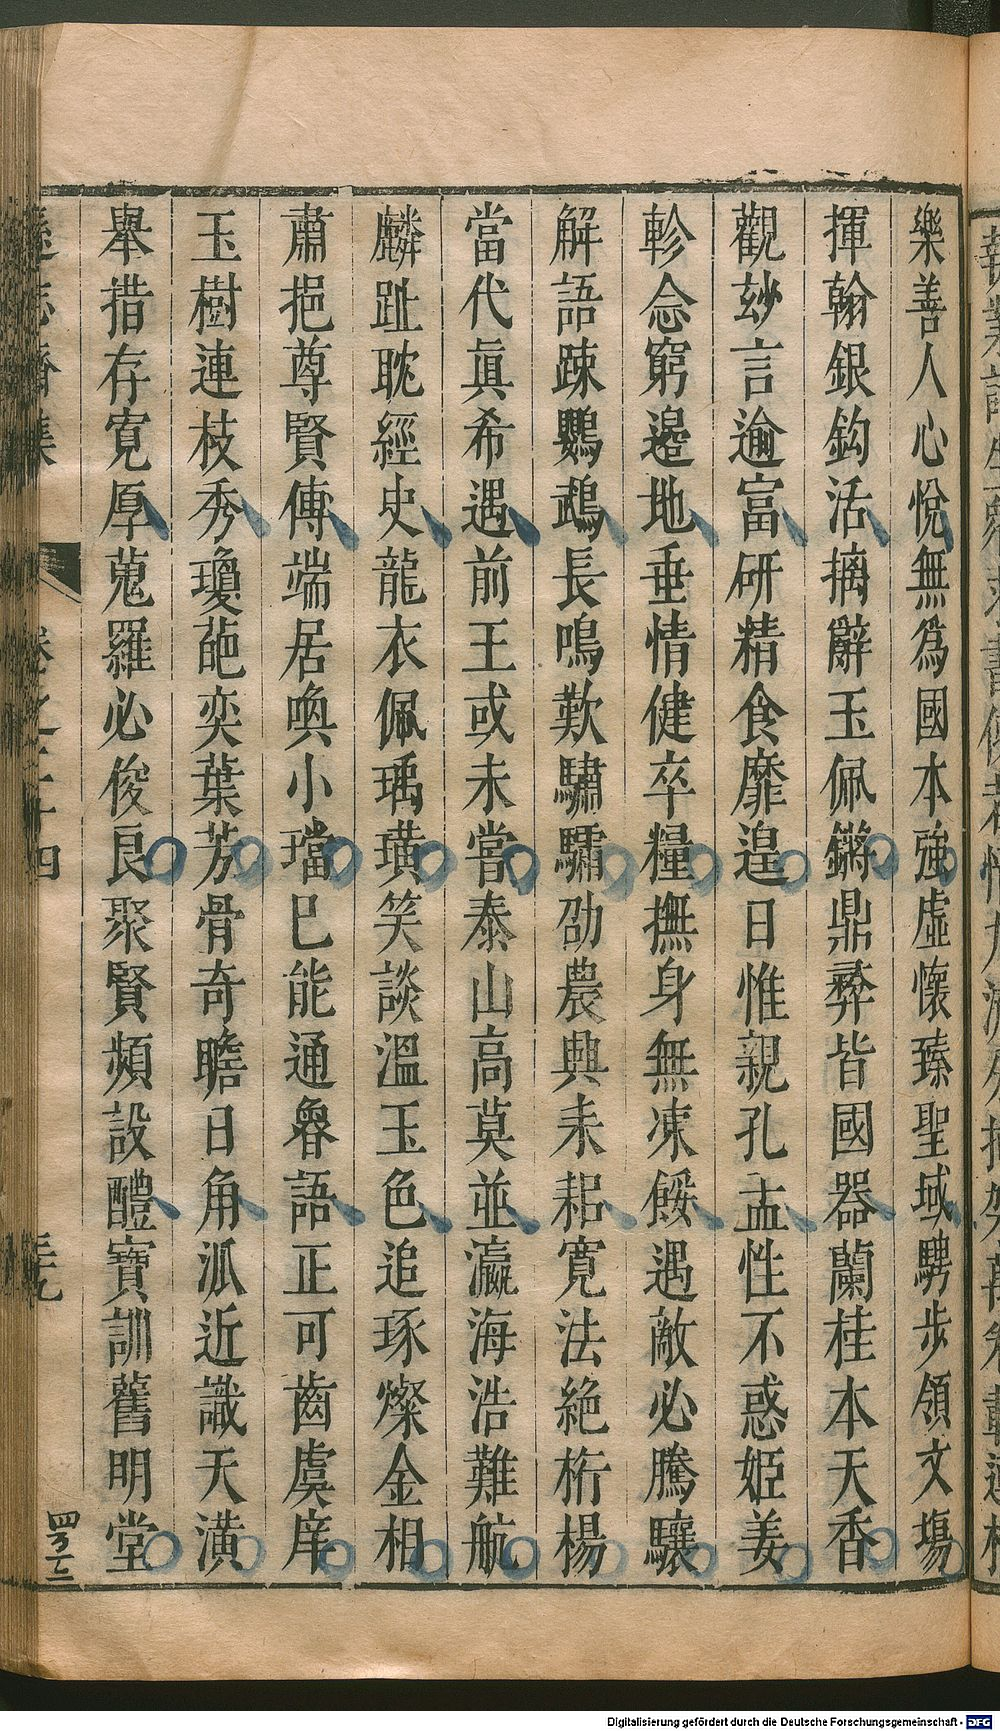 樂善人心悅無為國本強虛懷臻聖域騁步領文場
揮翰銀鈎活摛辭玉佩鏘鼎彞皆國器蘭桂本天香
觀玅言逾富研精食靡遑日惟親孔孟性不惑姬姜
軫念窮邉地垂情健卒糧撫身無凍餒遇敵必騰驤
解語踈鸚鵡長鳴歎驌驦劭農興耒耜寬法絕桁楊
當代眞希遇前王或未嘗泰山高莫並瀛海浩難航
麟趾耽經史龍衣佩瑀璜笑談溫玉色追琢燦金相
肅挹尊賢傳端居喚小璫巳能通魯語正可齒虞庠
玉樹連枝秀瓊葩奕葉芳骨奇瞻日角派近識天潢
舉措存寬厚蒐羅必俊良聚賢頻設醴寶訓舊明堂
遜志齋集 卷之二十四 三十九
Digitalisierung gefördert durch die Deutsche Forschungsgemeinschaft - DFG